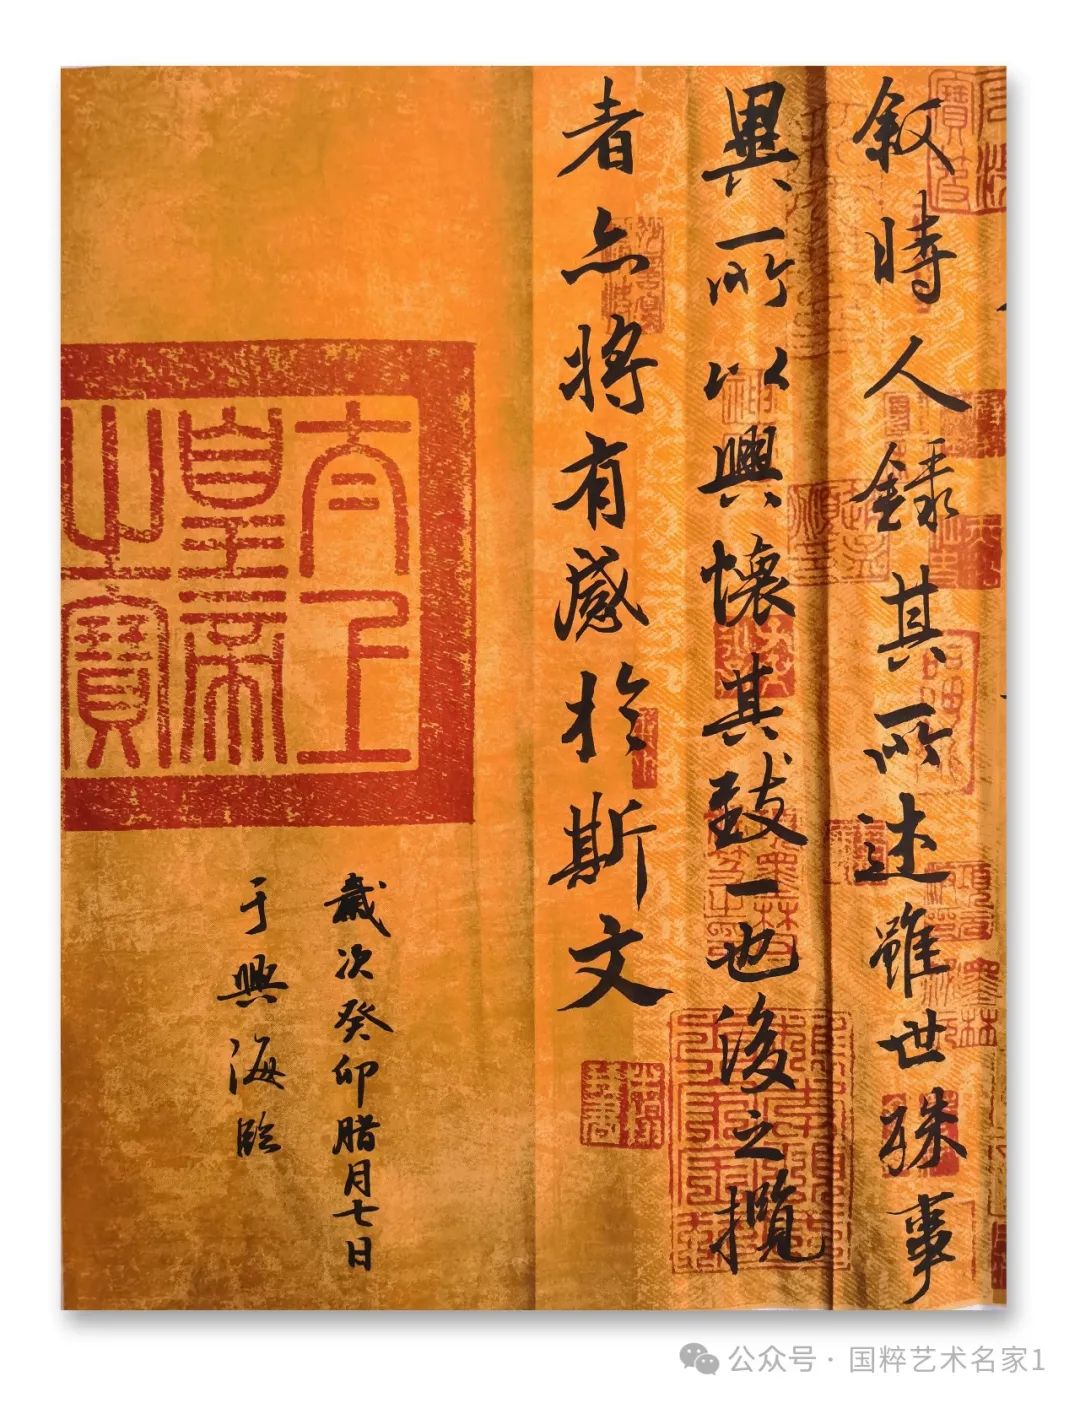 叙時人錄其所述雖世殊事
異所以興懷其致一也後之攬
者亦將有感於斯文
太上皇帝之寶
歲次癸卯腊月七日
于興海臨
公众号·国粹艺术名家1